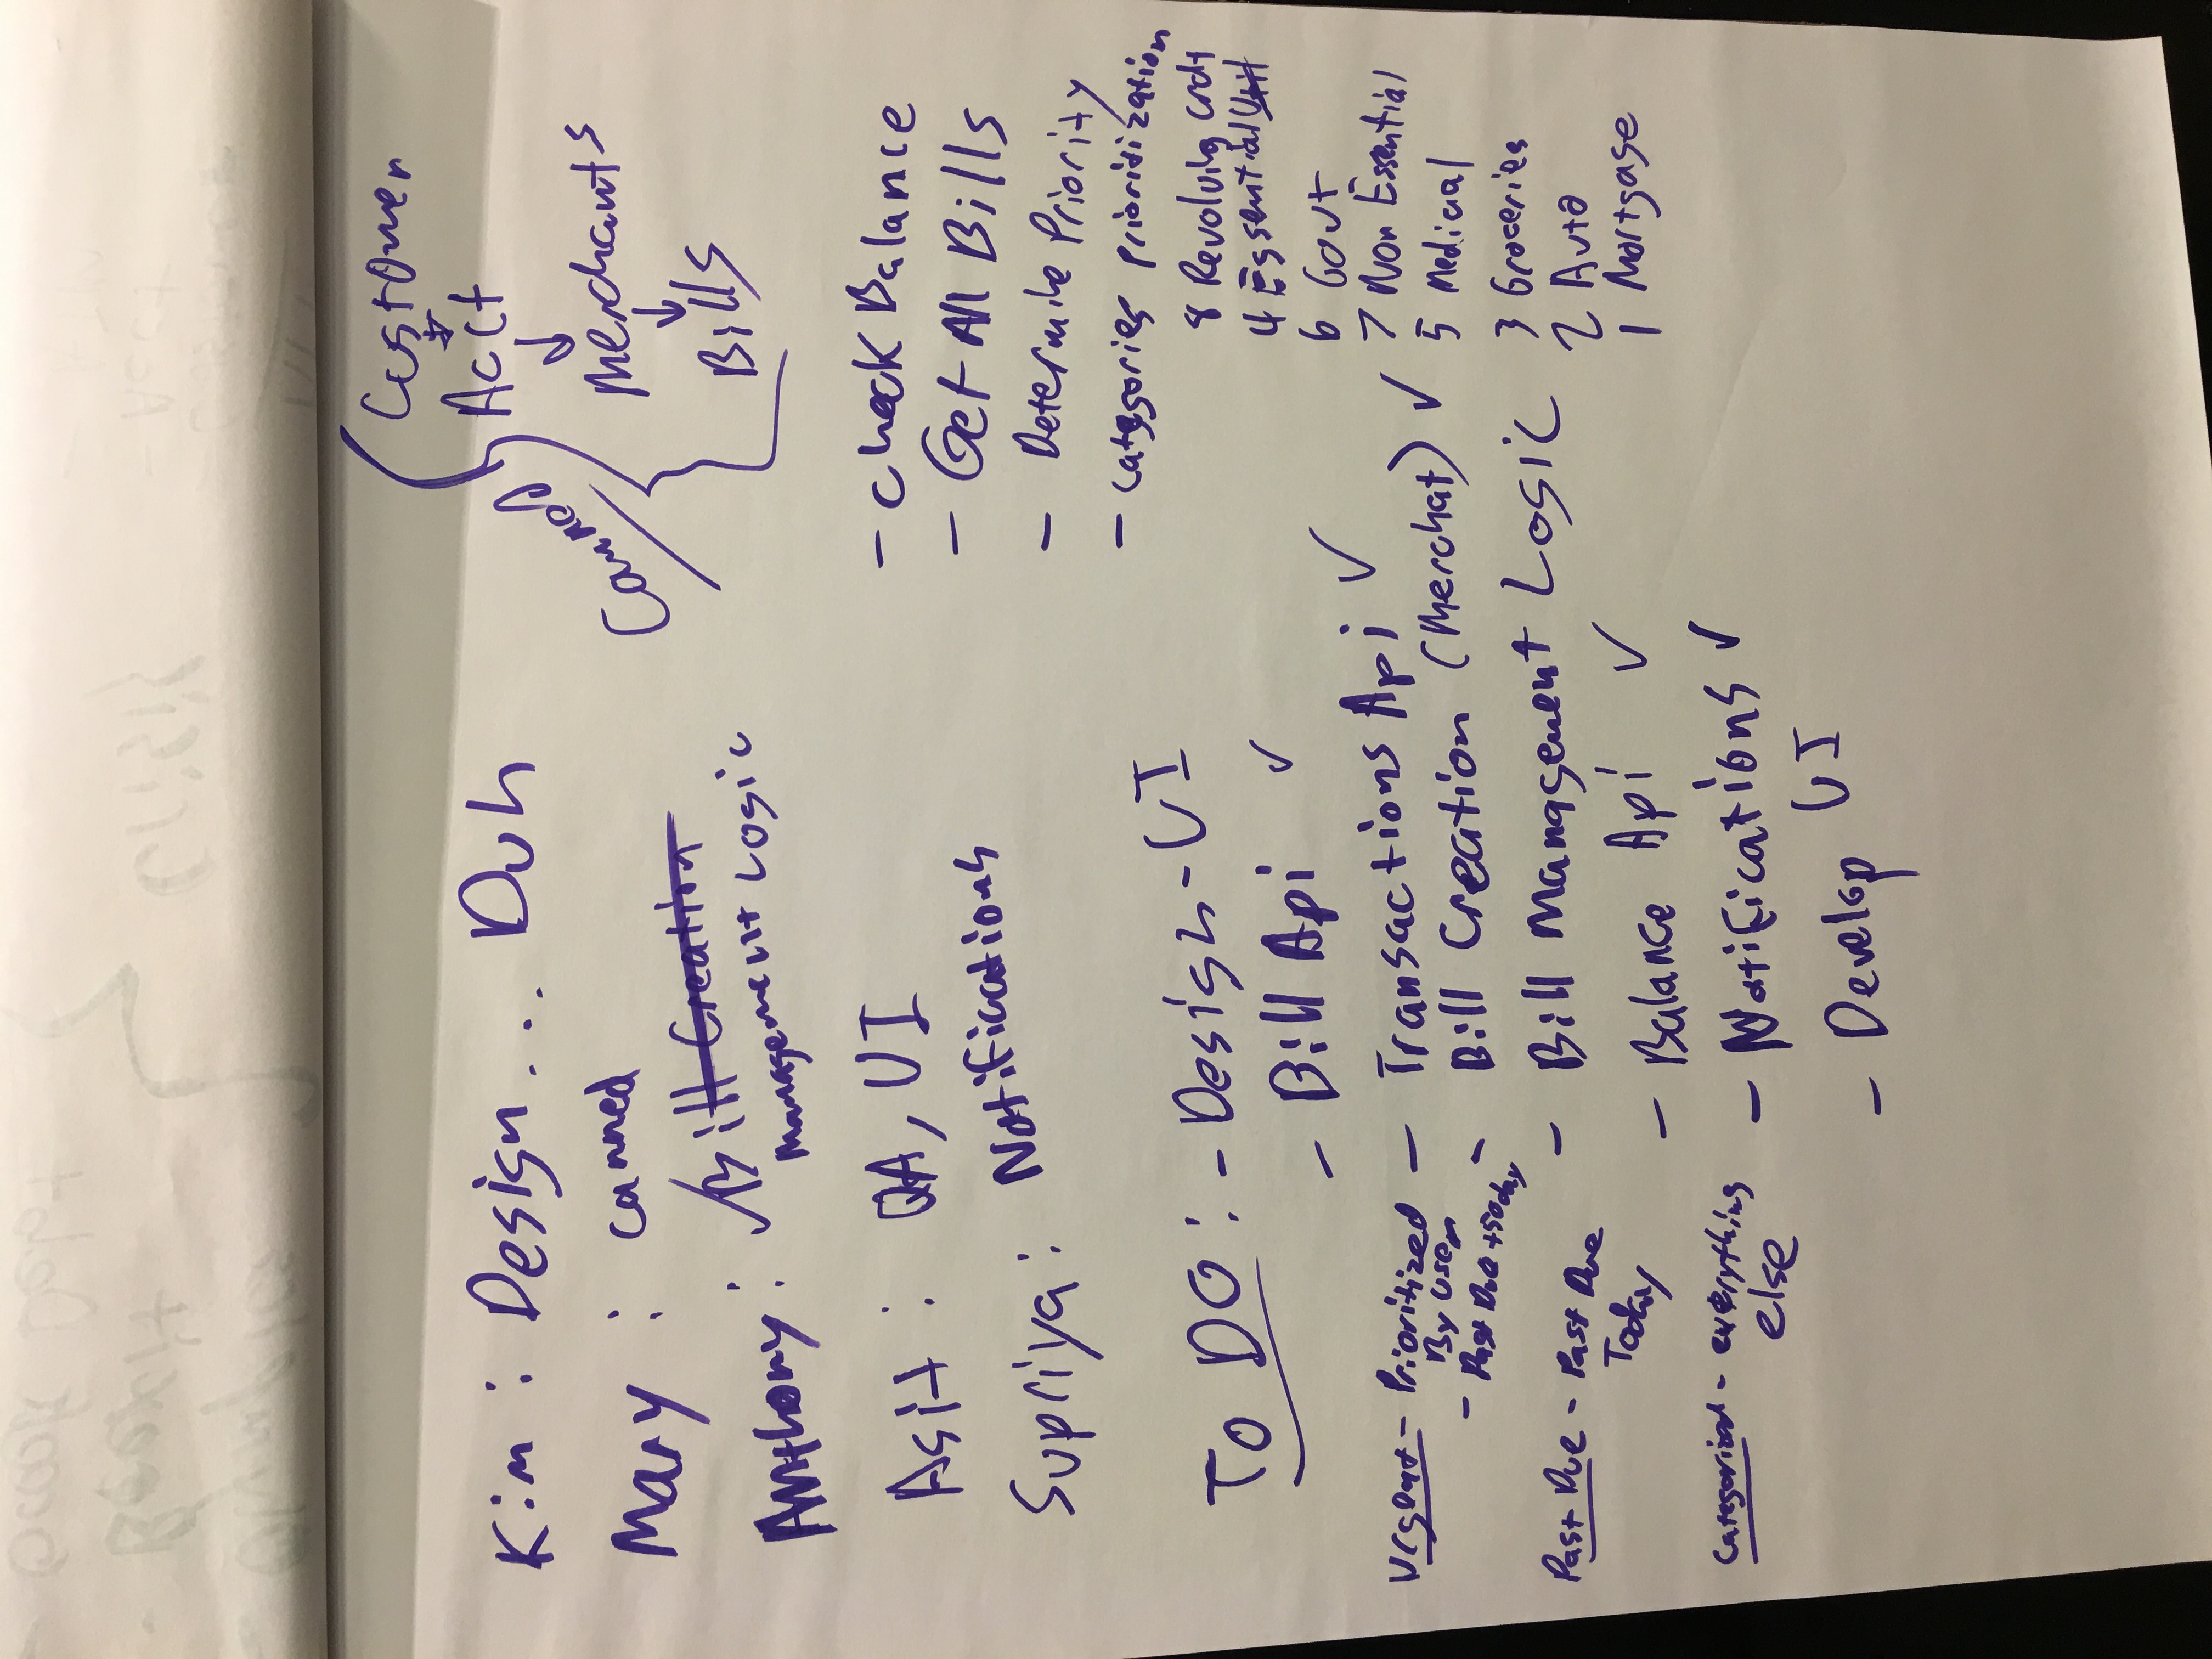 Customer
Acct
Merchants
Bills
Canned
Kim : Design ... Duh
Mary : canned
Anthony : Bill Creation
Management Logic
Asit : QA, UI
Supriya : Notifications
- Check Balance
- Get All Bills
- Determine Priority
- Categories Prioritization
8 Revolving Crdt
4 Essential Util
6 Govt
7 Non Essential
5 Medical
3 Groceries
2 Auto
1 Mortgage
To DO : - Design - UI
- Bill Api ✓
- Transactions Api ✓
- Bill Creation (Merchat) ✓
- Bill Management Logic
- Balance Api ✓
- Notifications ✓
- Develop UI
Urgent - Prioritized
By User
- Past Due + 5 day
Past Due - Past Due
Today
Categorized - everything
else